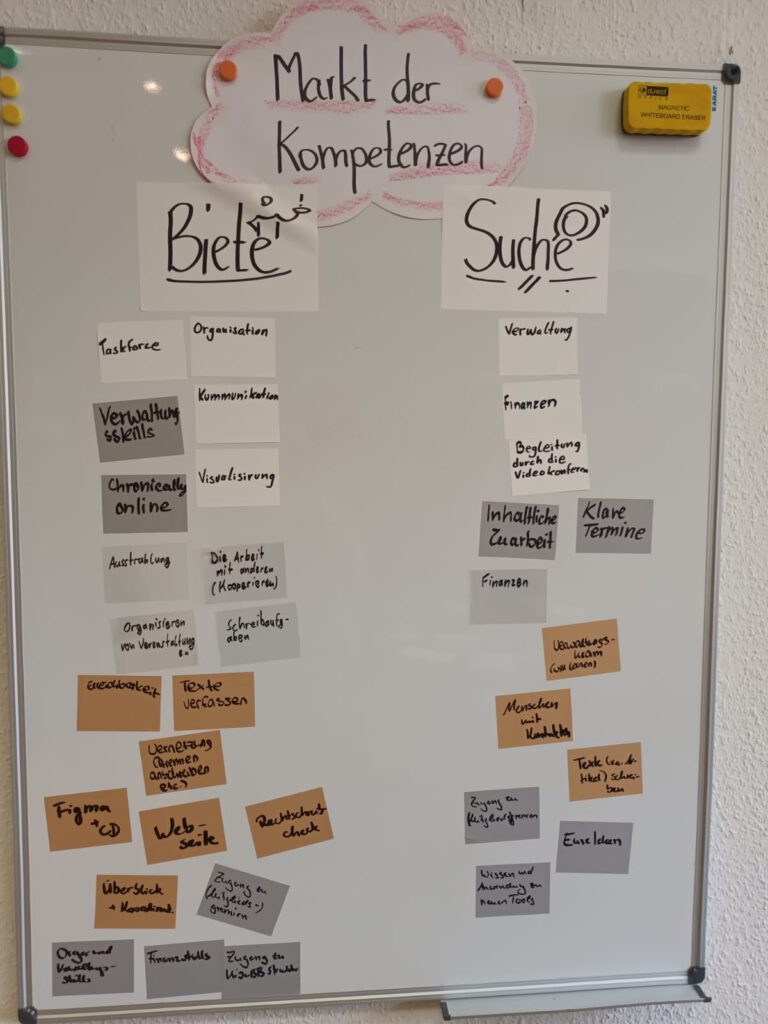 Markt der
Kompetenzen
MAGNETIC
WHITEBOARD ERASER
KARAT
Biete
Suche
Taskforce
Organisation
Verwaltung
sskills
Kummunikation
Chronically
online
Visualisirung
Ausstrahlung
Die Arbeit
mit anderen
(Kooperieren)
Organisieren
von Veranstaltung
en
Schreibaufg-
aben
Erreichbarkeit
Texte
verfassen
Vernetzung
anschreiben
etc.)
Figma
+ CD
Web-
seite
Rechtschreib
check
Überblick
+ Koordinat.
Zugang zu
(Mitglieds-)
gremien
Orga und
Verwaltungs-
skills
Finanzskills
Zugang zu
Verwaltung
Finanzen
Begleitung
durch die
Videokonferen
Inhaltliche
Zuarbeit
Klare
Termine
Finanzen
Verwaltungs-
kram
Menschen
mit
Kontakten
Texte
schrei-
ben
Zugang zu
Mitgliedsgremien
Wissen und
Anwendung zu
neuen Tools